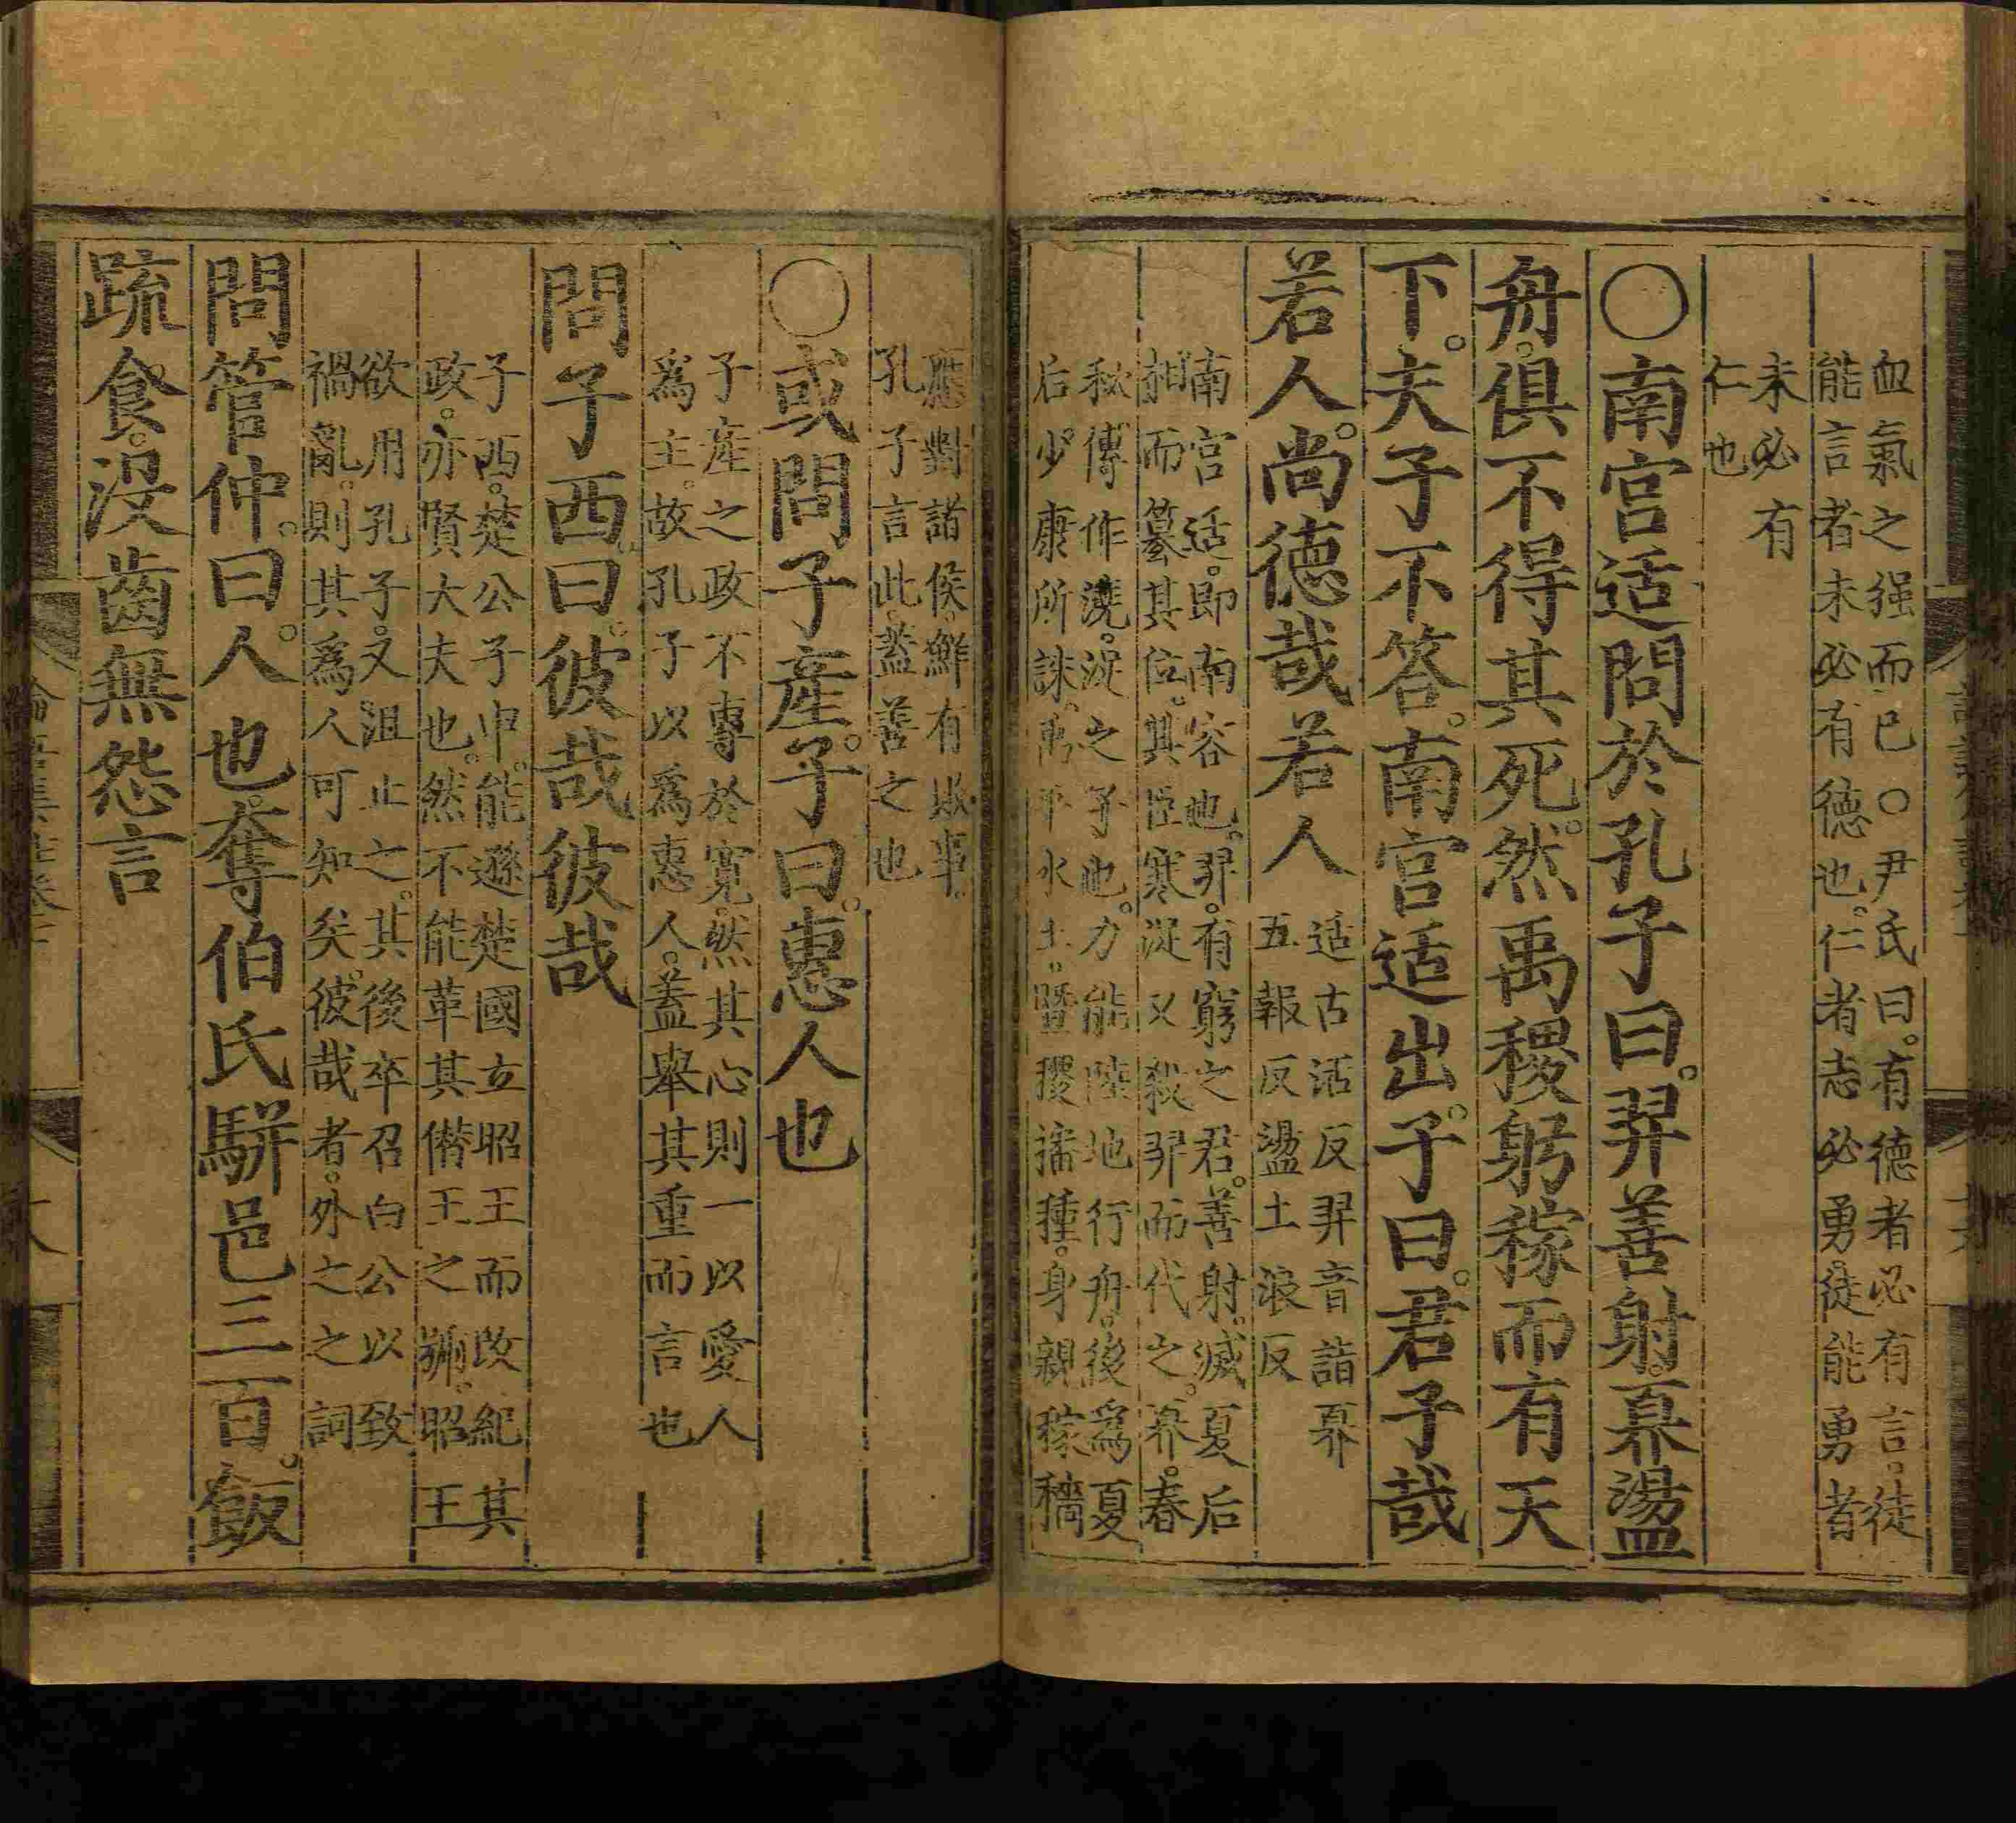 血氣之强而已○尹氏曰。有德者必有言。徒
能言者未必有德也。仁者志必勇。徒能勇者
未必有
仁也
○南宫适問於孔子曰。羿善射。奡盪
舟。俱不得其死。然禹稷躬稼而有天
下。夫子不答。南宫适出。子曰。君子哉
若人。尚德哉若人
适古活反羿音詣奡
五報反盪土浪反
南宫适。即南容也。羿。有窮之君。善射。滅夏后
相而簒其位。其臣寒浞又殺羿而代之。奡。春
秋傳作澆。浞之子也。力能陸地行舟。後爲夏
后少康所誅。禹平水土。曁稷播種。身親稼穡
應對諸侯。鮮有敗事。
孔子言此。蓋善之也
○或問子產。子曰。惠人也
子產之政不專於寬。然其心則一以愛人
爲主。故孔子以爲惠人。蓋舉其重而言也
問子西。曰。彼哉彼哉
子西。楚公子申。能遜楚國立昭王而改紀其
政。亦賢大夫也。然不能革其僭王之號。昭王
欲用孔子。又沮止之。其後卒召白公以致
禍亂。則其爲人可知矣。彼哉者。外之之詞
問管仲。曰。人也。奪伯氏騈邑三百。飯
疏食。沒齒無怨言